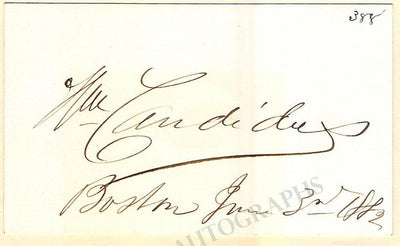 388
Wm Candidus
Boston Jan 3rd 1882
AUTOGRAPHS